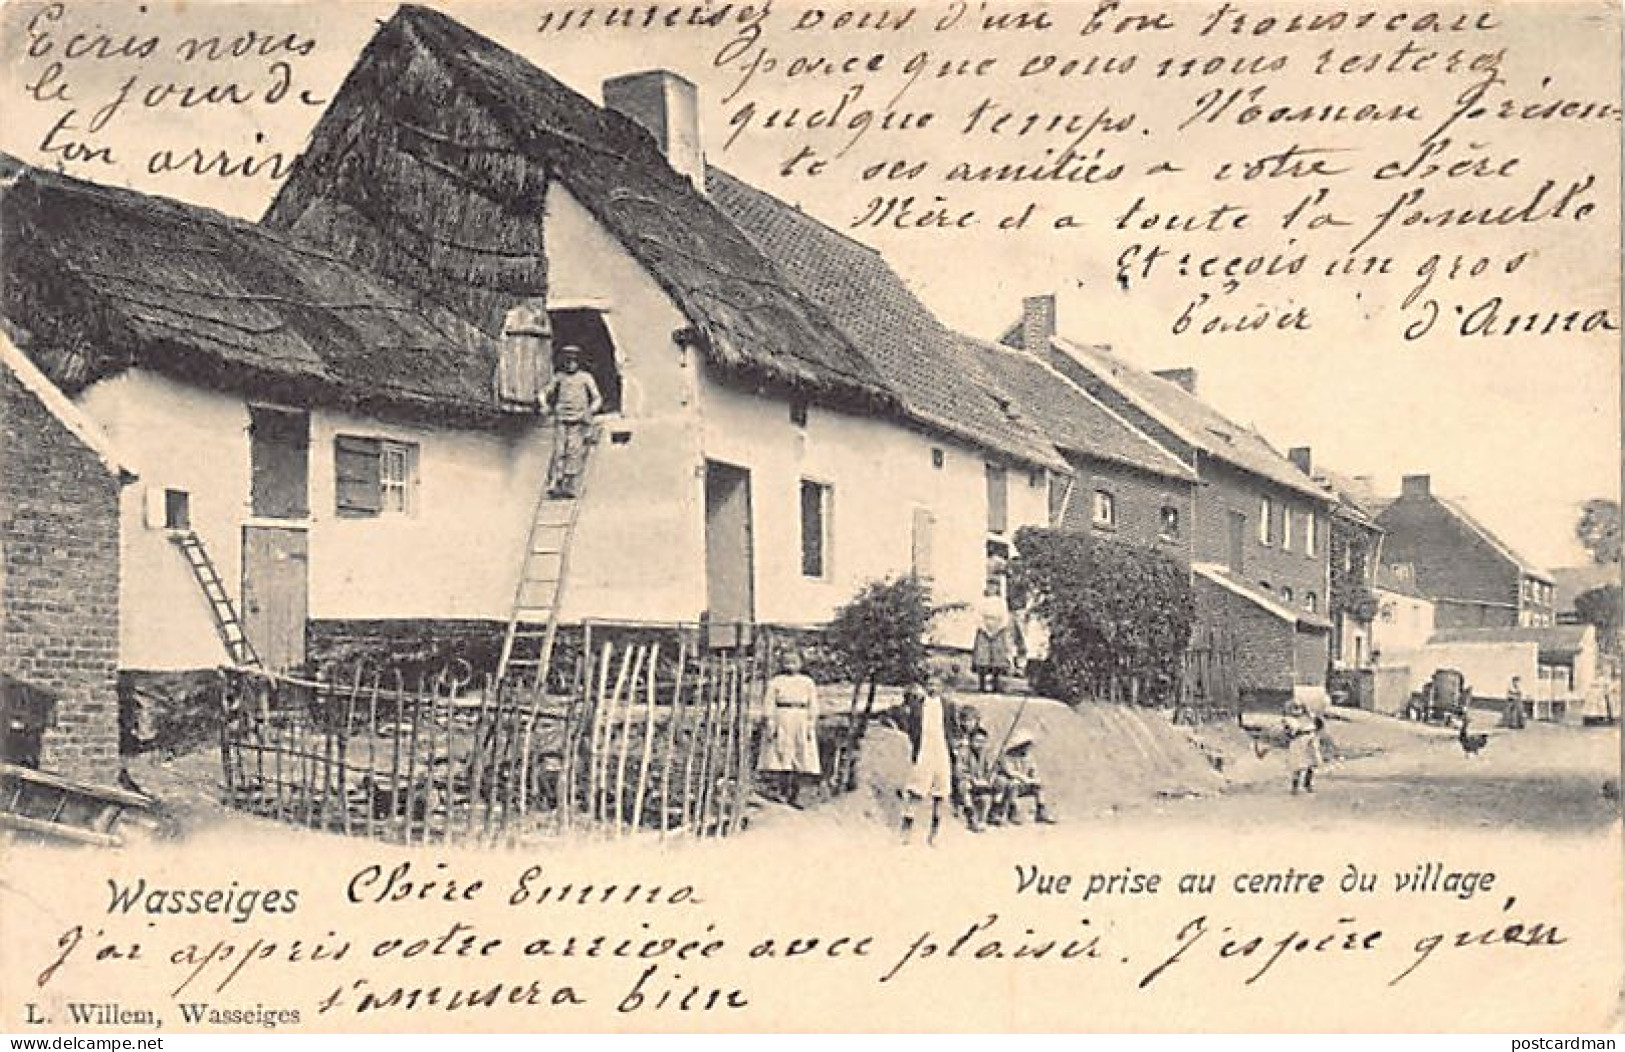 Ecris nous
le jour de
ton arrivé
munisez vous d'un bon trousseau
parce que vous nous resterez
quelque temps. Maman présen-
te ses amitiés a votre chère
Mère et a toute la famille
Et reçois un gros
baiser d'Anna
Wasseiges
Chère Emma
Vue prise au centre du village
J'ai appris votre arrivée avec plaisir. J'espère qu'on
s'amusera bien
L. Willem, Wasseiges
delcampe.net
postcardman